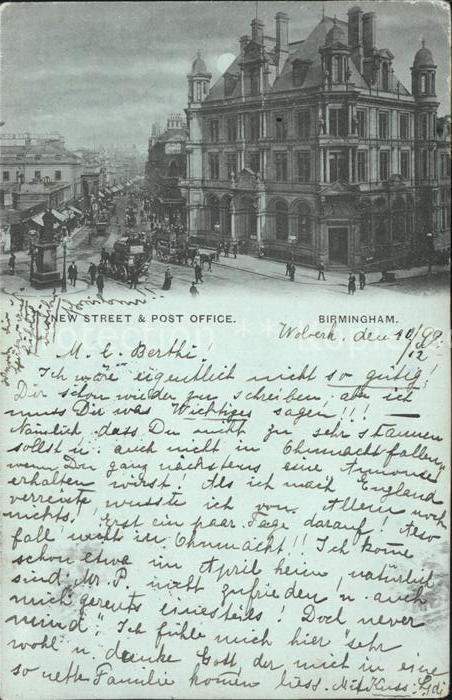 NEW STREET & POST OFFICE.
BIRMINGHAM.
Wolverh. den 10/12 98
M. l. Berthi!
Ich wäre eigentlich nicht so gütig!
Dir schon wieder zu schreiben, aber ich
muss Dir was Wichtiges sagen!!! —
Nämlich dass Du nicht zu sehr staunen
sollst u. auch nicht in Ohnmacht fallen
wenn Du ganz nächstens eine Annonse
erhalten wirst! Als ich nach England
verreiste, wusste ich von Allem noch
nichts. Erst ein paar Tage darauf! Also
fall nicht in Ohnmacht!! Ich kome
schon etwa im April heim, natürlich
sind Mr. P. nicht zufrieden u. auch
mich gereuts einesteils! Doch never
mind". Ich fühle mich hier sehr
wohl u. danke Gott, der mich in eine
so nette Familie komen liess. Mit Kuss